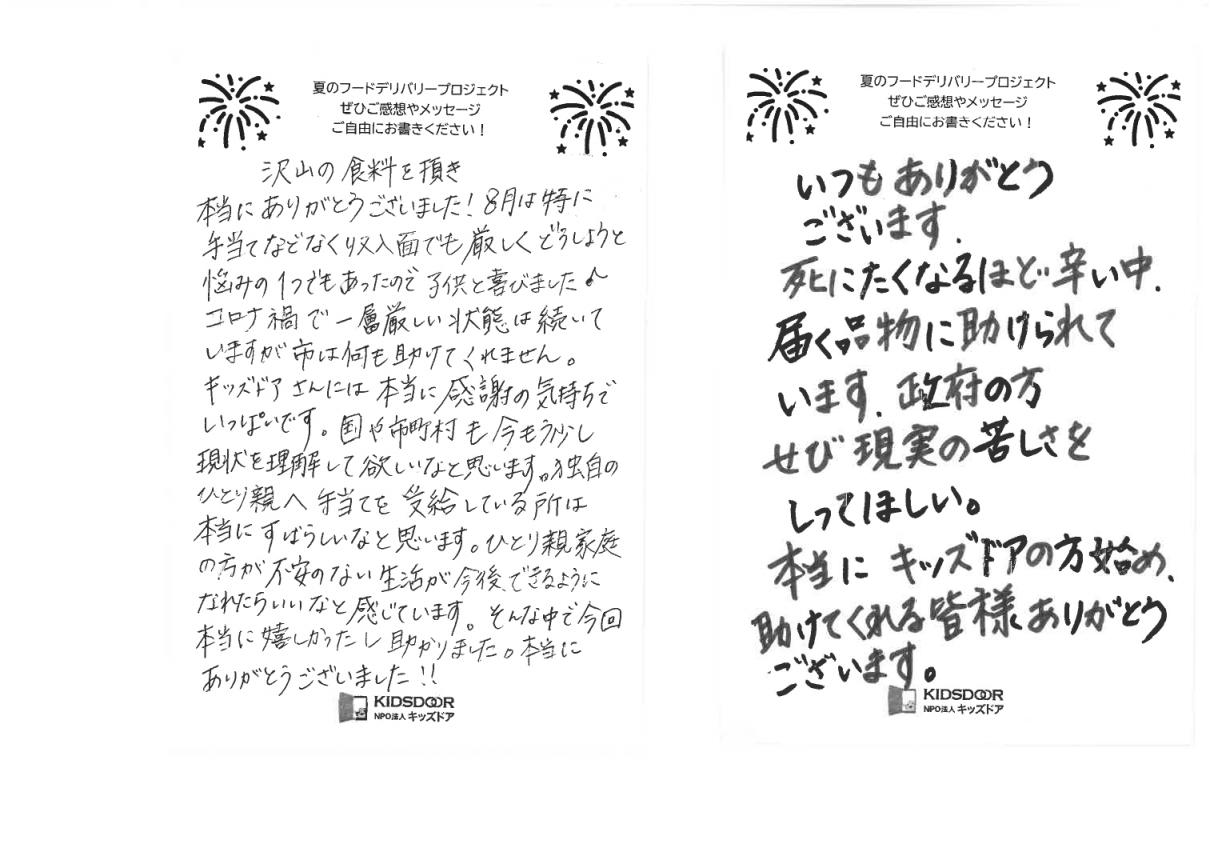 夏のフードデリバリープロジェクト
ぜひご感想やメッセージ
ご自由にお書きください！
沢山の食料を頂き
本当にありがとうございました！8月は特に
手当てなどなく収入面でも厳しくどうしようと
悩みの1つでもあったので子供と喜びました♪
コロナ禍で一層厳しい状態は続いて
いますが市は何も助けてくれません。
キッズドアさんには本当に感謝の気持ちで
いっぱいです。国や市町村も今もう少し
現状を理解して欲しいなと思います。独自の
ひとり親へ手当てを受給している所は
本当にすばらしいなと思います。ひとり親家庭
の方が不安のない生活が今後、できるように
なれたらいいなと感じています。そんな中で今回
本当に嬉しかったし助かりました。本当に
ありがとうございました!!
KIDSDOOR
NPO法人 キッズドア
夏のフードデリバリープロジェクト
ぜひご感想やメッセージ
ご自由にお書きください！
いつもありがとう
ございます.
死にたくなるほど辛い中.
届く品物に助けられて
います.政府の方
せび現実の苦しさを
しってほしい。
本当にキッズドアの方始め、
助けてくれる皆様ありがとう
ございます。
KIDSDOOR
NPO法人 キッズドア